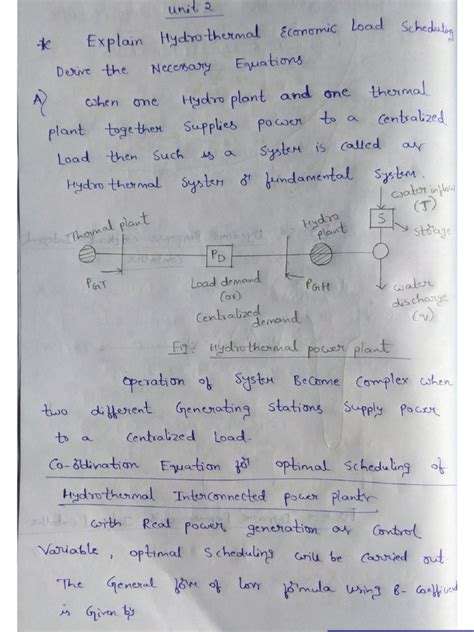 Unit 2
* Explain Hydrothermal Economic Load Scheduling
Derive the Necessary Equations
A) when one Hydroplant and one thermal
plant together Supplies power to a centralized
Load then Such is a System is called as
Hydrothermal System or fundamental System.
Thermal plant
Hydro
plant
water inflow
(J)
S
storage
PD
PGT
Load demand
(or)
Centralized
demand
PGH
water
discharge
(q)
Fig: Hydrothermal power plant
Operation of System Become Complex when
two different Generating Stations Supply power
to a Centralized Load.
Co-ordination Equation for optimal Scheduling of
Hydrothermal Interconnected power plants
with Real power generation as Control
Variable, optimal Scheduling will be carried out
The General form of Loss formula using B-Coefficient
is Given by